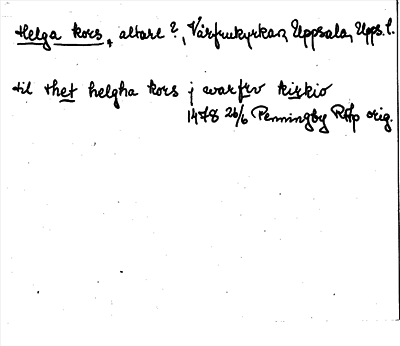 Helga kors, altare?, Vårfrukyrkan, Uppsala, Upps. l.
til thet helgha kors j warfrv kirkio
1478 26/6 Penningby RAp orig.